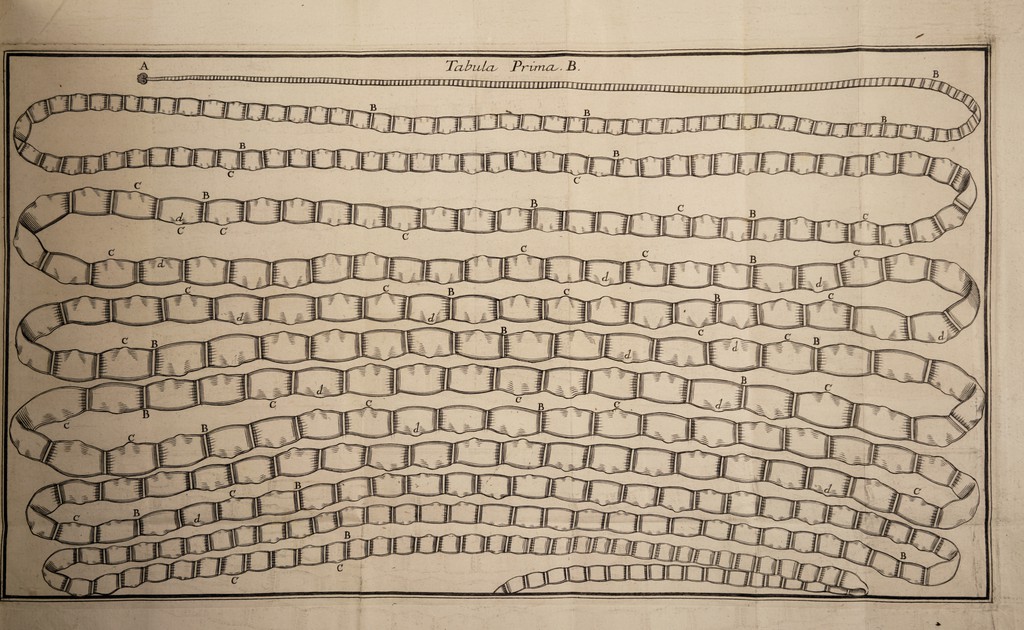 Tabula Prima. B.
A
B
B B B
B B
C C
C B B C B C
d
C C C
C C C B C
d d d
C C B C B C
d d C d
C B B C B
d d
d B C
B C C d
C B C B C
d
C B d C
C B d B
B C C